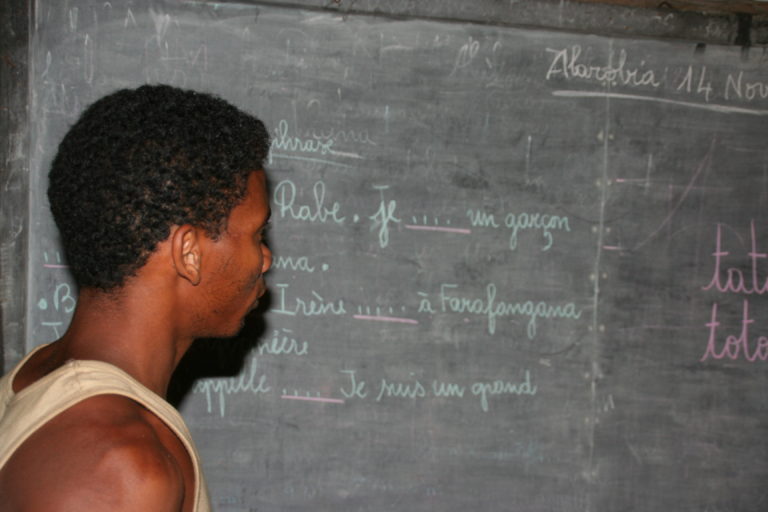 Alarobia 14 Nov
phrase
Rabe. je ..... un garçon
na.
.B Irène ..... à Farafangana
tata
mière
toto
appelle .... Je suis un grand